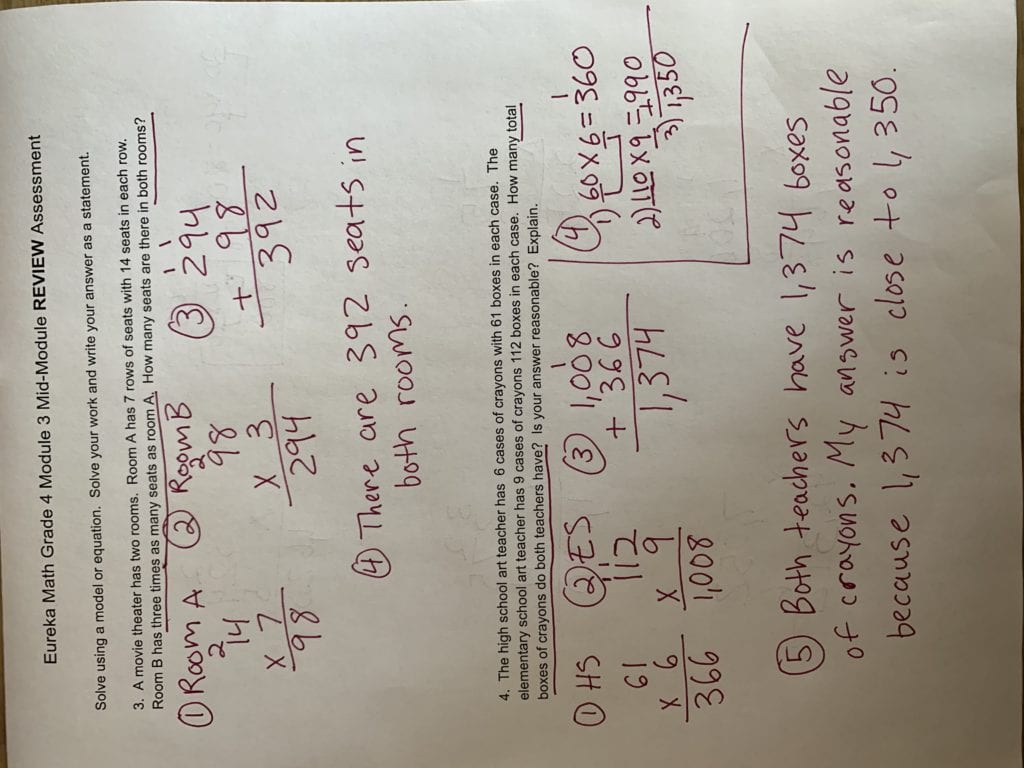 Eureka Math Grade 4 Module 3 Mid-Module REVIEW Assessment
Solve using a model or equation. Solve your work and write your answer as a statement.
3. A movie theater has two rooms. Room A has 7 rows of seats with 14 seats in each row.
Room B has three times as many seats as room A. How many seats are there in both rooms?
① Room A
2
14
x 7
98
② Room B
2
98
x 3
294
③
1
294
+ 98
392
④ There are 392 seats in
both rooms.
4. The high school art teacher has 6 cases of crayons with 61 boxes in each case. The
elementary school art teacher has 9 cases of crayons 112 boxes in each case. How many total
boxes of crayons do both teachers have? Is your answer reasonable? Explain.
① HS
61
x 6
366
② ES
1 1
112
x 9
1,008
③
1
1,008
+ 366
1,374
④
1) 60 x 6 = 360
1
2) 110 x 9 = +990
3) 1,350
⑤ Both teachers have 1,374 boxes
of crayons. My answer is reasonable
because 1,374 is close to 1,350.